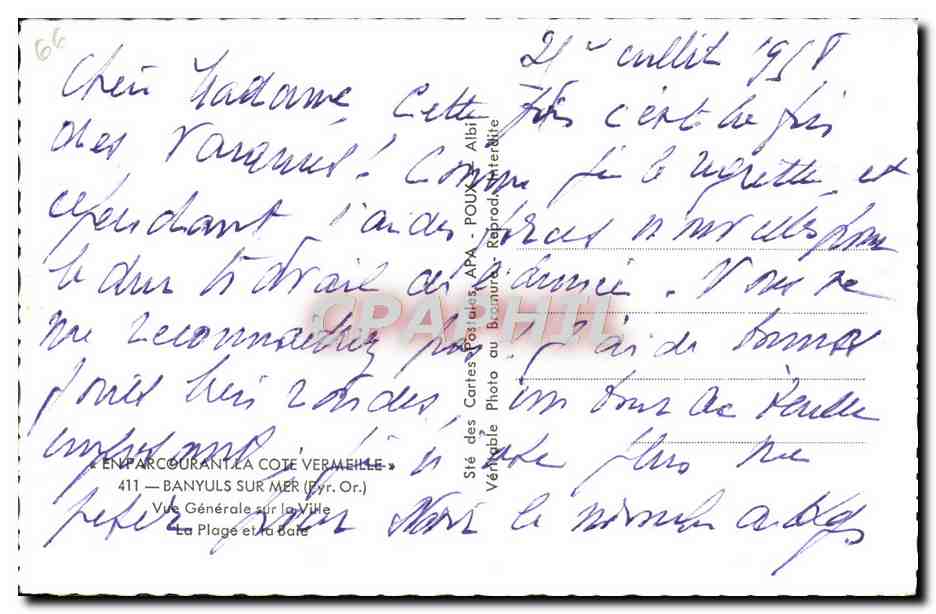 66
juillet 1958
Chère Madame, Cette fois c'est la fin
des vacances! Comme je le regrette, et
cependant j'ai des forces nouvelles pour
le dur travail de l'année. Vous ne
me reconnaîtrez pas! J'ai de bonnes
joues bien rondes, un tour de taille
imposant, je n'ose plus me
peser pour voir le nombre de kgs
« EN PARCOURANT LA COTE VERMEILLE »
411 — BANYULS SUR MER (Pyr. Or.)
Vue Générale sur la Ville
La Plage et la Baie
Sté des Cartes Postales APA - POUX - Albi
Véritable Photo au Bromure - Reprod. Interdite
CPAPHIL